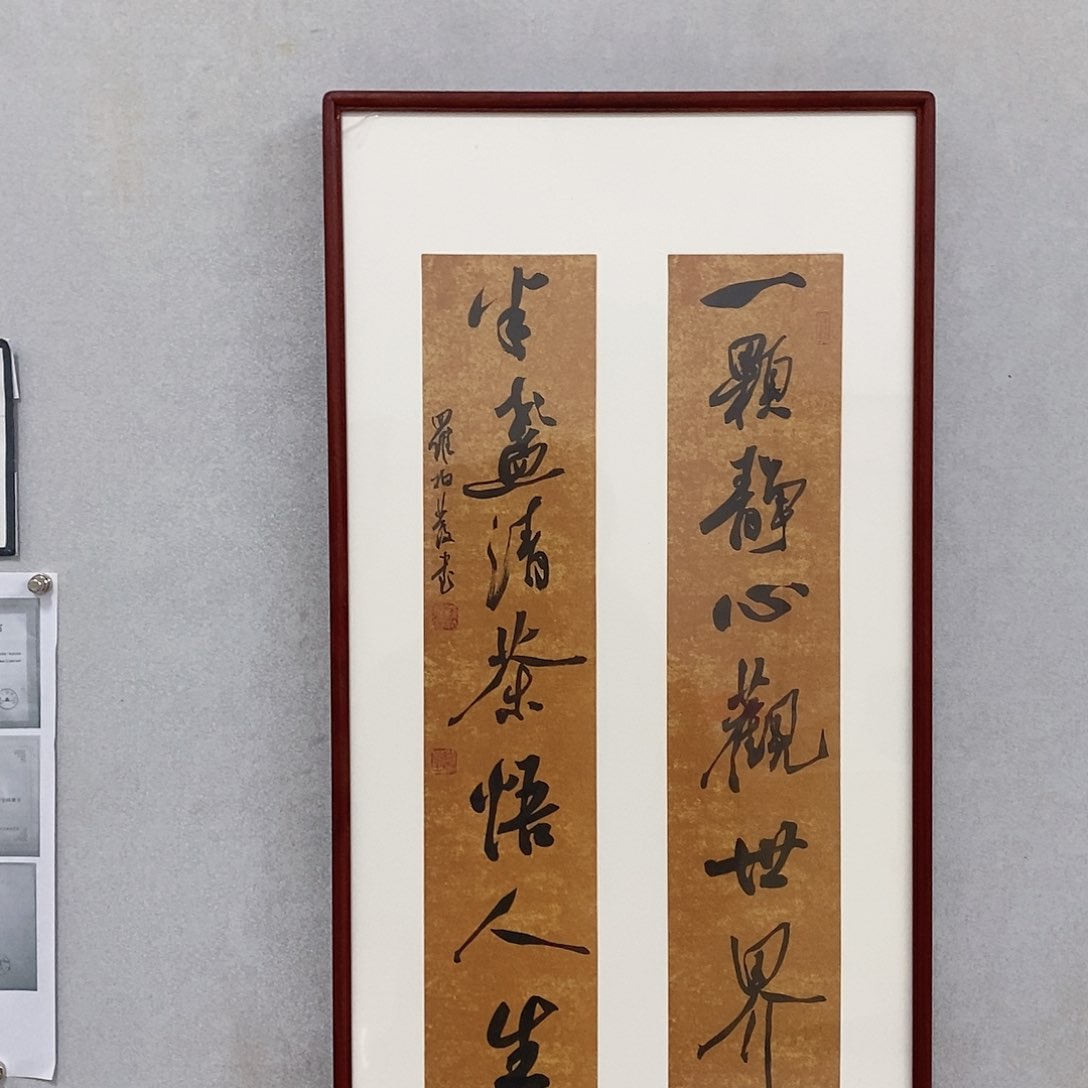 一顆靜心觀世界
半盞清茶悟人生
羅柏發書